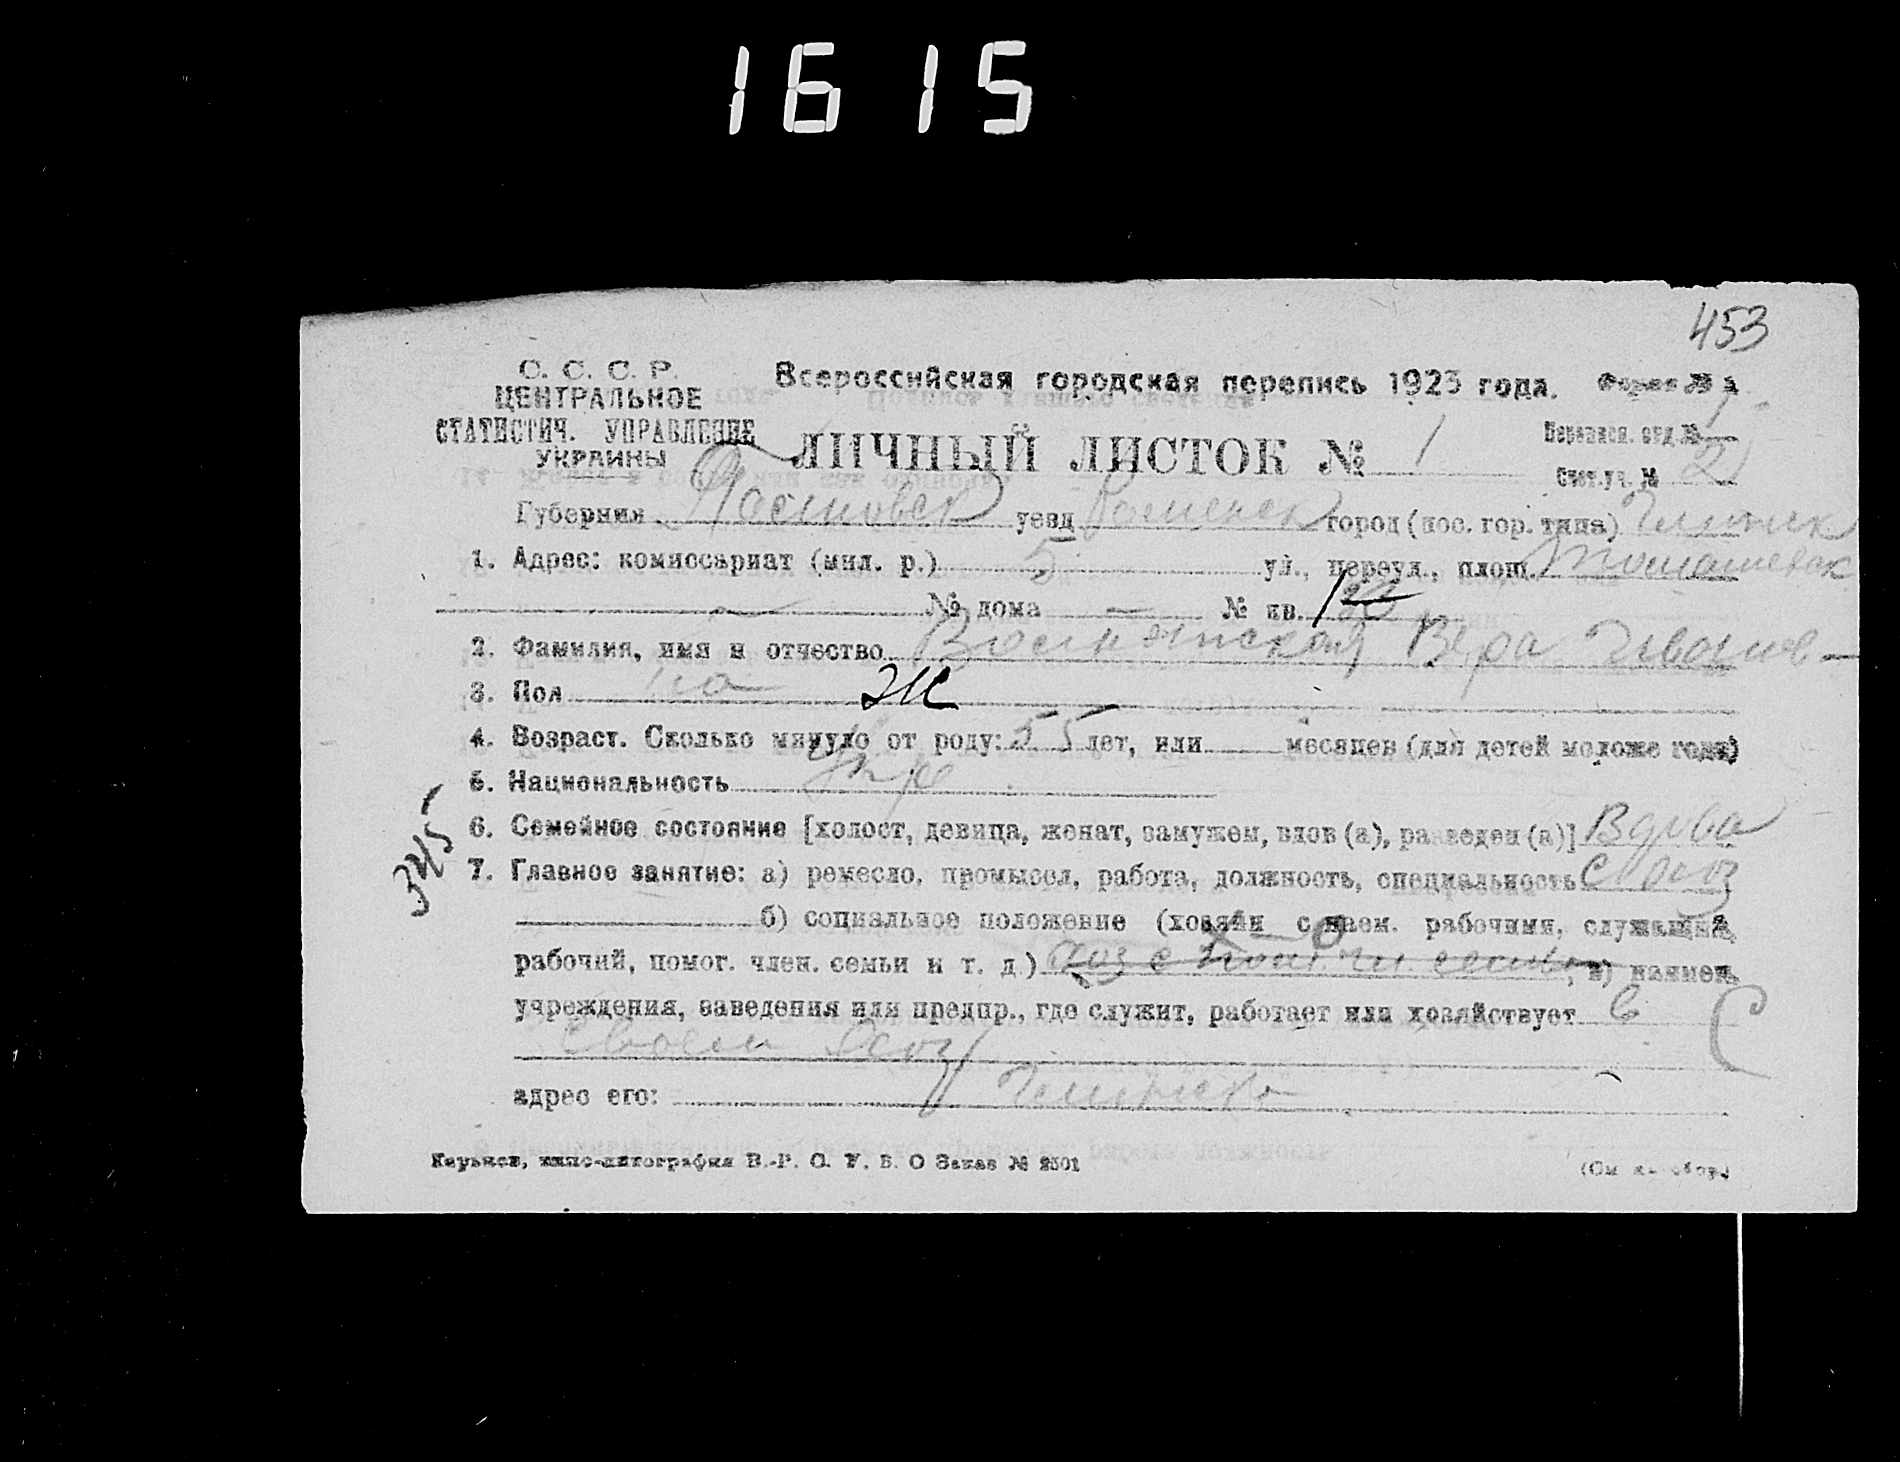 1615
453
С. С. С. Р.
ЦЕНТРАЛЬНОЕ
СТАТИСТИЧ. УПРАВЛЕНИЕ
УКРАИНЫ
Всероссийская городская перепись 1923 года. Форма №
ЛИЧНЫЙ ЛИСТОК № 1
Переписн. отд. №
Счет. уч. № 2
Губерния уезд Роменск город (пос. гор. типа) Глинск
1. Адрес: комиссариат (мил. р.) 5 ул., переул., площ.
№ дома — № кв.
2. Фамилия, имя и отчество Вера Иванов-
3. Пол на Ж
4. Возраст. Сколько минуло от роду: 55 лет, или месяцев (для детей моложе года)
5. Национальность Укр
345
6. Семейное состояние [холост, девица, женат, замужем, вдов (а), разведен (а)] Вдова
7. Главное занятие: а) ремесло, промысел, работа, должность, специальность
б) социальное положение (хозяин с наем. рабочими, служащий,
рабочий, помог. член. семьи и т. д.) хоз с пом. чл. семьи, в) наимен.
учреждения, заведения или предпр., где служит, работает или хозяйствует в
своем хоз
адрес его: Глинск
Харьков, типо-литография В.-Р. О. У. В. О Заказ № 2501